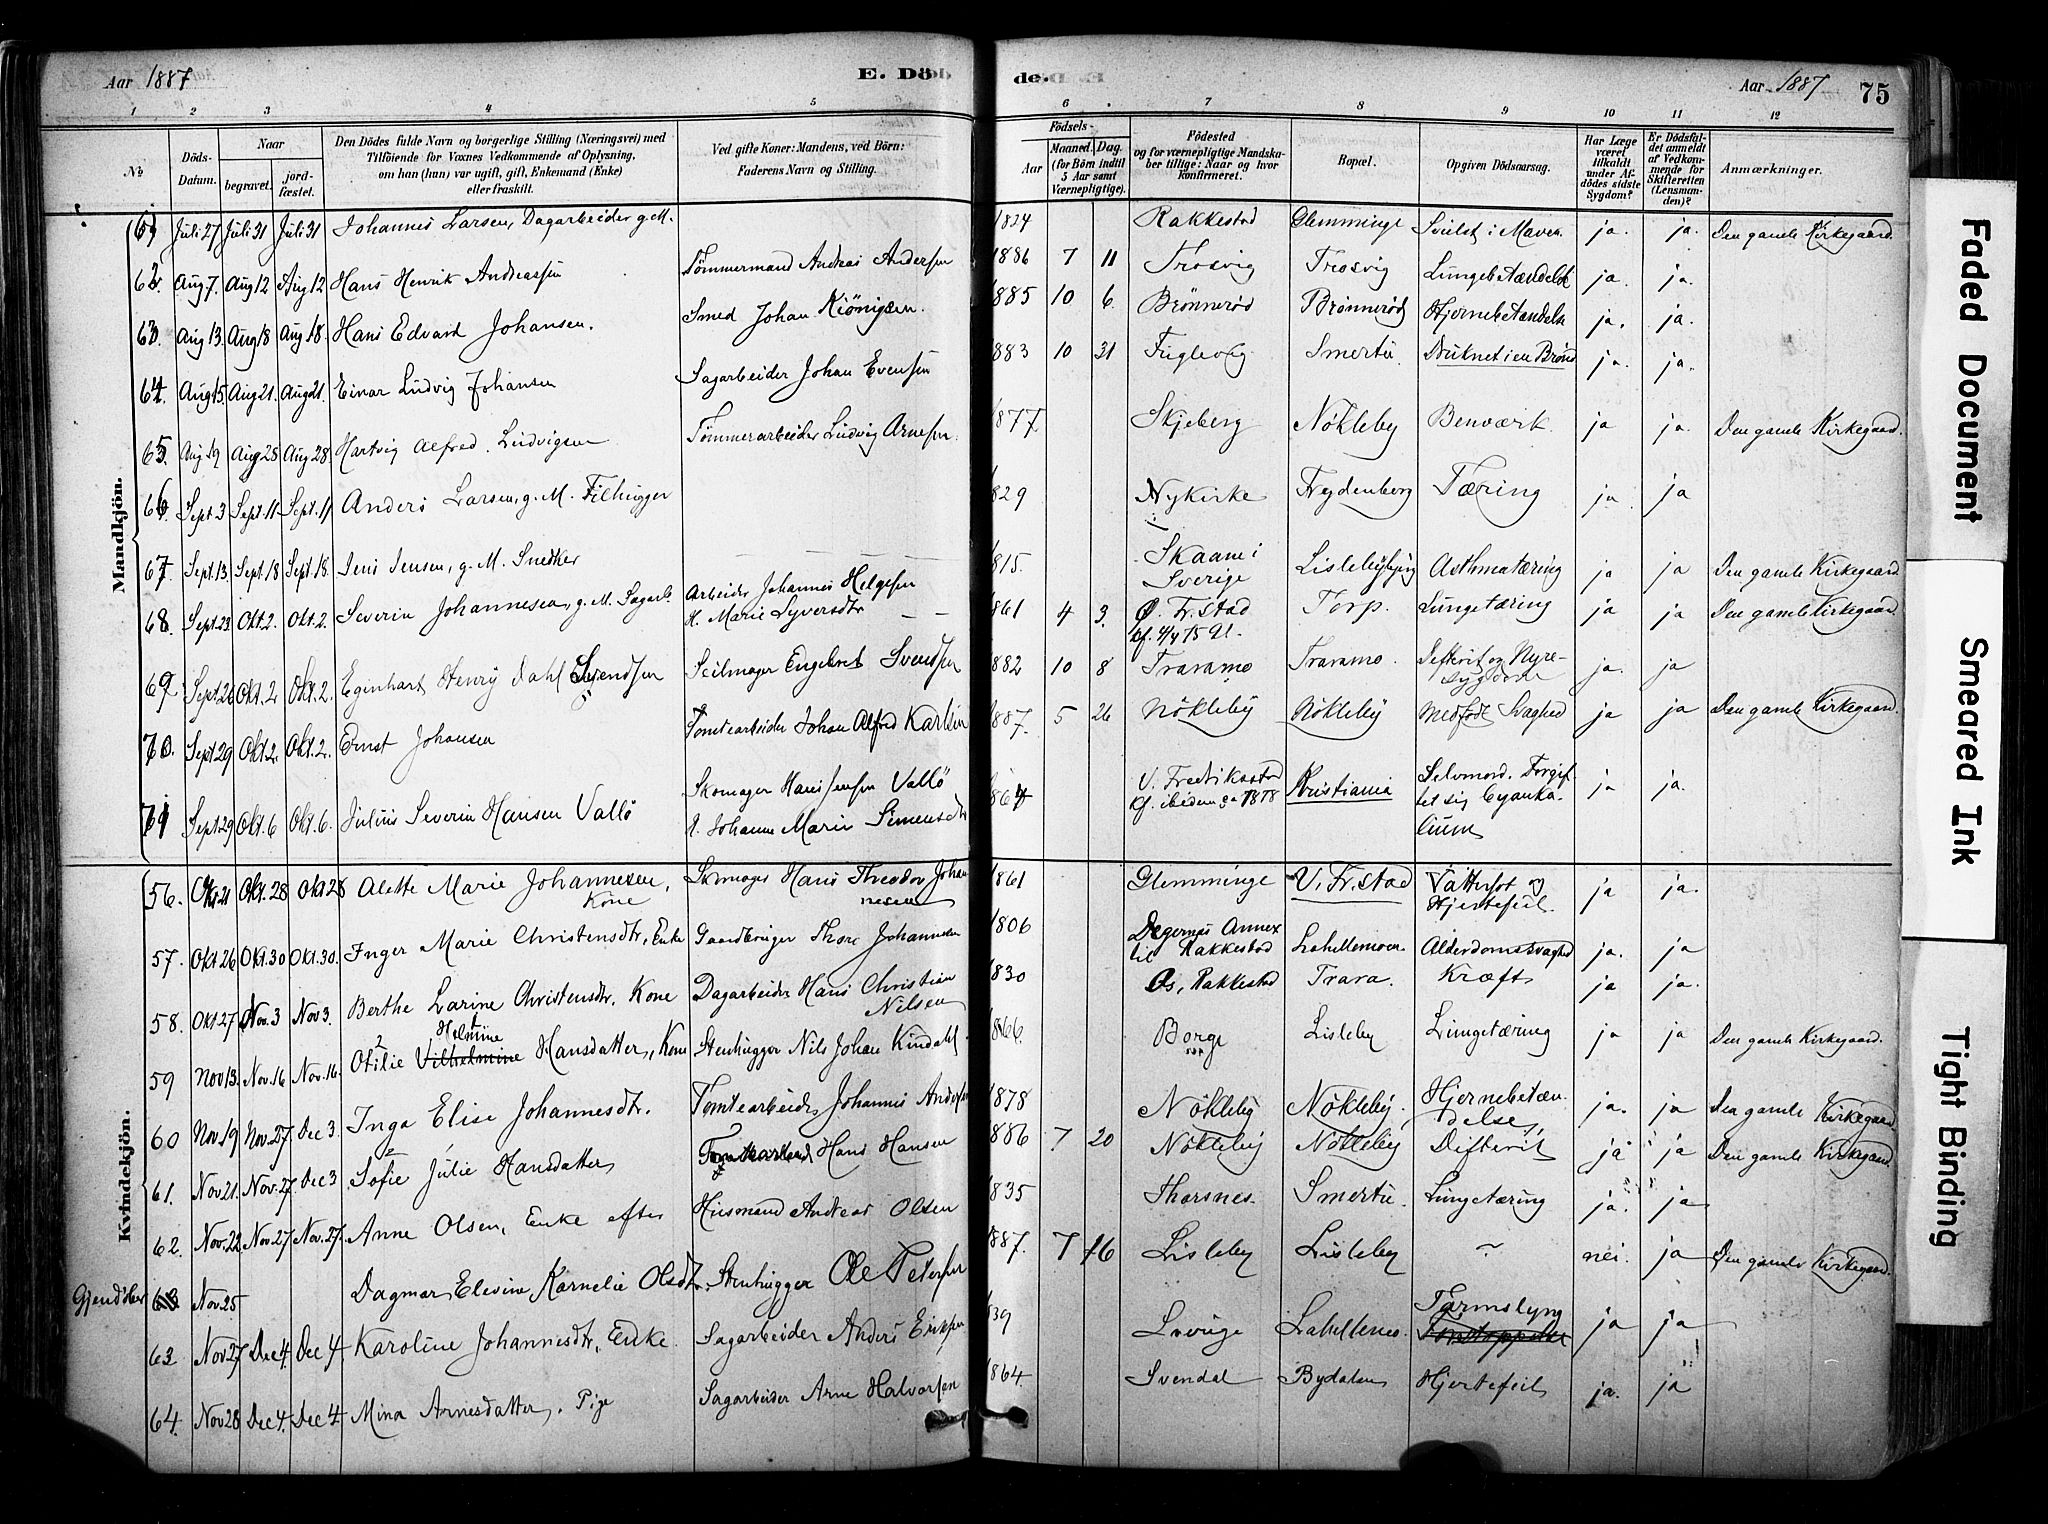 Aar 1887
E. Dö
de.
Aar 1887
75
1 2 3 4 5 6 7 8 9 10 11 12
№
Döds-Datum.
Naar
begravet.
jordfæstet.
Den Dödes fulde Navn og borgerlige Stilling (Næringsvei) med
Tilföiende for Voxnes Vedkommende af Oplysning,
om han (hun) var ugift, gift, Enkemand (Enke)
eller fraskilt.
Ved gifte Koner: Mandens, ved Börn:
Faderens Navn og Stilling.
Födsels-
Aar
Maaned. Dag.
(for Börn indtil
5 Aar samt
Værnepligtige).
Födested
og for værnepligtige Mandska-
ber tillige: Naar og hvor
Konfirmeret.
Bopæl.
Opgiven Dödsaarsag.
Har Læge
været
tilkaldt
under Af-
dödes sidste
Sygdom?
Er Dödsfal-
det anmeldt
af Vedkom-
mende for
Skifteretten
(Lensman-
den)?
Anmærkninger.
Mandkjön.
61 Juli 27 Juli 31 Juli 31 Johannes Larsen, Dagarbeider g. M. 1824 Rakkestad Glemminge Svulst i Maven ja. ja. Den gamle Kirkegaard.
62. Aug 7. Aug 12 Aug 12 Hans Henrik Andreassen Tømmermand Andreas Andersen 1886 7 11 Trosvig Trosvig Lungebetændelse ja. ja.
63. Aug 13. Aug 18 Aug 18. Hans Edvard Johansen. Smed Johan Kiönigsen. 1885 10 6. Brønnerød Brønnerød Hjernebetændelse ja. ja.
64. Aug 15. Aug 21. Aug 21. Einar Ludvig Johansen Sagarbeider Johan Evensen 883 10 31 Fuglevig Smertu. Druknet i en Brønd ja. ja.
65. Aug 19 Aug 28 Aug 28. Hartvig Alfred Ludvigsen Tömmerarbeider Ludvig Arnesen. 1877. Skjeberg Nökleby Benværk. ja ja. Den gamle Kirkegaard.
66. Sept. 3 Sept. 11 Sept. 11 Anders Larsen, g. M. Filhugger 829 Nykirke Frydenberg Tæring ja. ja
67. Sept. 13. Sept. 18 Sept. 18. Jens Jensen, g. M. Snedker 815. Skaane i Sverige Lislebybyen Asthmatæring ja ja Den gamle Kirkegaard
68. Sept. 23 Okt. 2. Okt. 2. Severin Johannesen, g. M. Sagarb. Arbeider Johannes Helgesen
H. Marie Syversdtr 1861 4 3. Ø. Fr.stad
kf. 4/4 75 Gl. Torp. Lungetæring ja ja Den gamle Kirkegaard.
69. Sept. 26 Okt. 2 Okt. 2. Eginhart Henry Dahl Svendsen Seilmager Engebret Svendsen 882 10 8 Traramo Traramo. Difterit og Nyre-
sygdom ja. ja
70. Sept 29 Okt. 2. Okt. 2. Ernst Johansen Tomtearbeider Johan Alfred Karlsen 1887. 5 26 Nökleby Nökleby Medfødt Svaghed ja ja Den gamle Kirkegaard.
71 Sept. 29 Okt. 6 Okt. 6. Julius Severin Hansen Vallö Skomager Hans Jensen Vallö
H. Johanne Marie Simensdtr 864 V. Fredriksstad
kf. ibidem 1878 Kristiania Selvmord. Forgif-
tet sig Cyanka-
lium ja ja.
Kvindekjön.
56. Okt 21 Okt. 28 Okt 28 Alette Marie Johannesen,
Kone Skomager Hans Theodor Johan
nesen 1861 Glemminge V. Fr.stad Vattersot og
Hjertefeil. ja ja.
57. Okt 26 Okt. 30 Okt. 30. Inger Marie Christensdtr, Enke Gaardbruger Thore Johannesen 1806 Degernes Annex
til Rakkestad Lahellemoen. Alderdomssvaghed ja. ja
58. Okt. 27 Nov. 3 Nov 3. Berthe Larine Christensdtr, Kone Dagarbeider Hans Christian
Nilsen 830 Os, Rakkestad Trara. Kræft ja ja.
Helmine
59 Nov 13. Nov. 16 Nov. 16. Otilie Vilhelmine Hansdatter, Kone Stenhugger Nils Johan Kindahl 866. Borge Lisleby Lungetæring ja ja Den gamle Kirkegaard.
60 Nov. 19 Nov. 27 Dec 3. Inga Elise Johannesdtr. Tomtearbeider Johannes Andersen 1878 Nökleby Nökleby. Hjernebetæn-
delse, ja. ja Den gamle Kirkegaard
61. Nov. 21. Nov. 27 Dec 3 Sofie Julie Hansdatter Hans Hansen 886 7 20 Nökleby Nökleby Difterit ja ja Den gamle Kirkegaard.
62. Nov. 22. Nov 27 Nov. 27. Anne Olsen, Enke efter Husmand Andreas Olsen 835 Thorsnes. Smertu. Lungetæring ja. ja
Nov. 25 Dagmar Elevine Karnelie Olsdtr. Stenhugger Ole Petersen 887. 7 16 Lisleby Lisleby ~ nei. ja Den gamle Kirkegaard.
63. Nov. 27 Dec 4. Dec 4. Karoline Johannesdtr, Enke. Sagarbeider Anders Eriksen 839 Sverige Lahellemo. Tarmslyng ja ja
64. Nov 28 Dec 4. Dec 4. Mina Arnesdatter, Pige Sagarbeider Arne Halvorsen 1864. Svendal Bydalen Hjertefeil ja. ja
Faded Document
Smeared Ink
Tight Binding